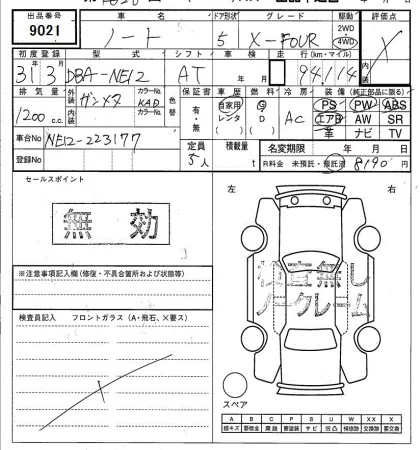 出品番号 車名 ドア形状 グレード 駆動 評価点
9021 ノート 5 X-FOUR 2WD 4WD X
初度登録 型式 シフト 車検 走行(km・マイル)
31 3 DBA-NE12 AT 年 月 94114
排気量 外装 ガンメタ カラーNo. KAD 色替 保証書 車歴 燃料 冷房 装備(純正部品に限る)
1200 c.c. 内装 カラーNo. 有・無 自家用 レンタ ( ) G D ( ) AC PS PW ABS
エアB AW SR
革 ナビ TV
車台No NE12-223177 定員 5人 積載量 t 名変期限 年 月 日
登録No R料金 未預託・預託済 8190 円
セールスポイント
無効
左 右
※注意事項記入欄(修復・不具合箇所および状態等)
検査無し
ノークレーム
検査員記入 フロントガラス(A・飛石、X要ス)
スペア
A B C P S U W XX X
線キズ 要板金 腐蝕 要塗装 サビ 凹凸 補修跡 交換済 要交換